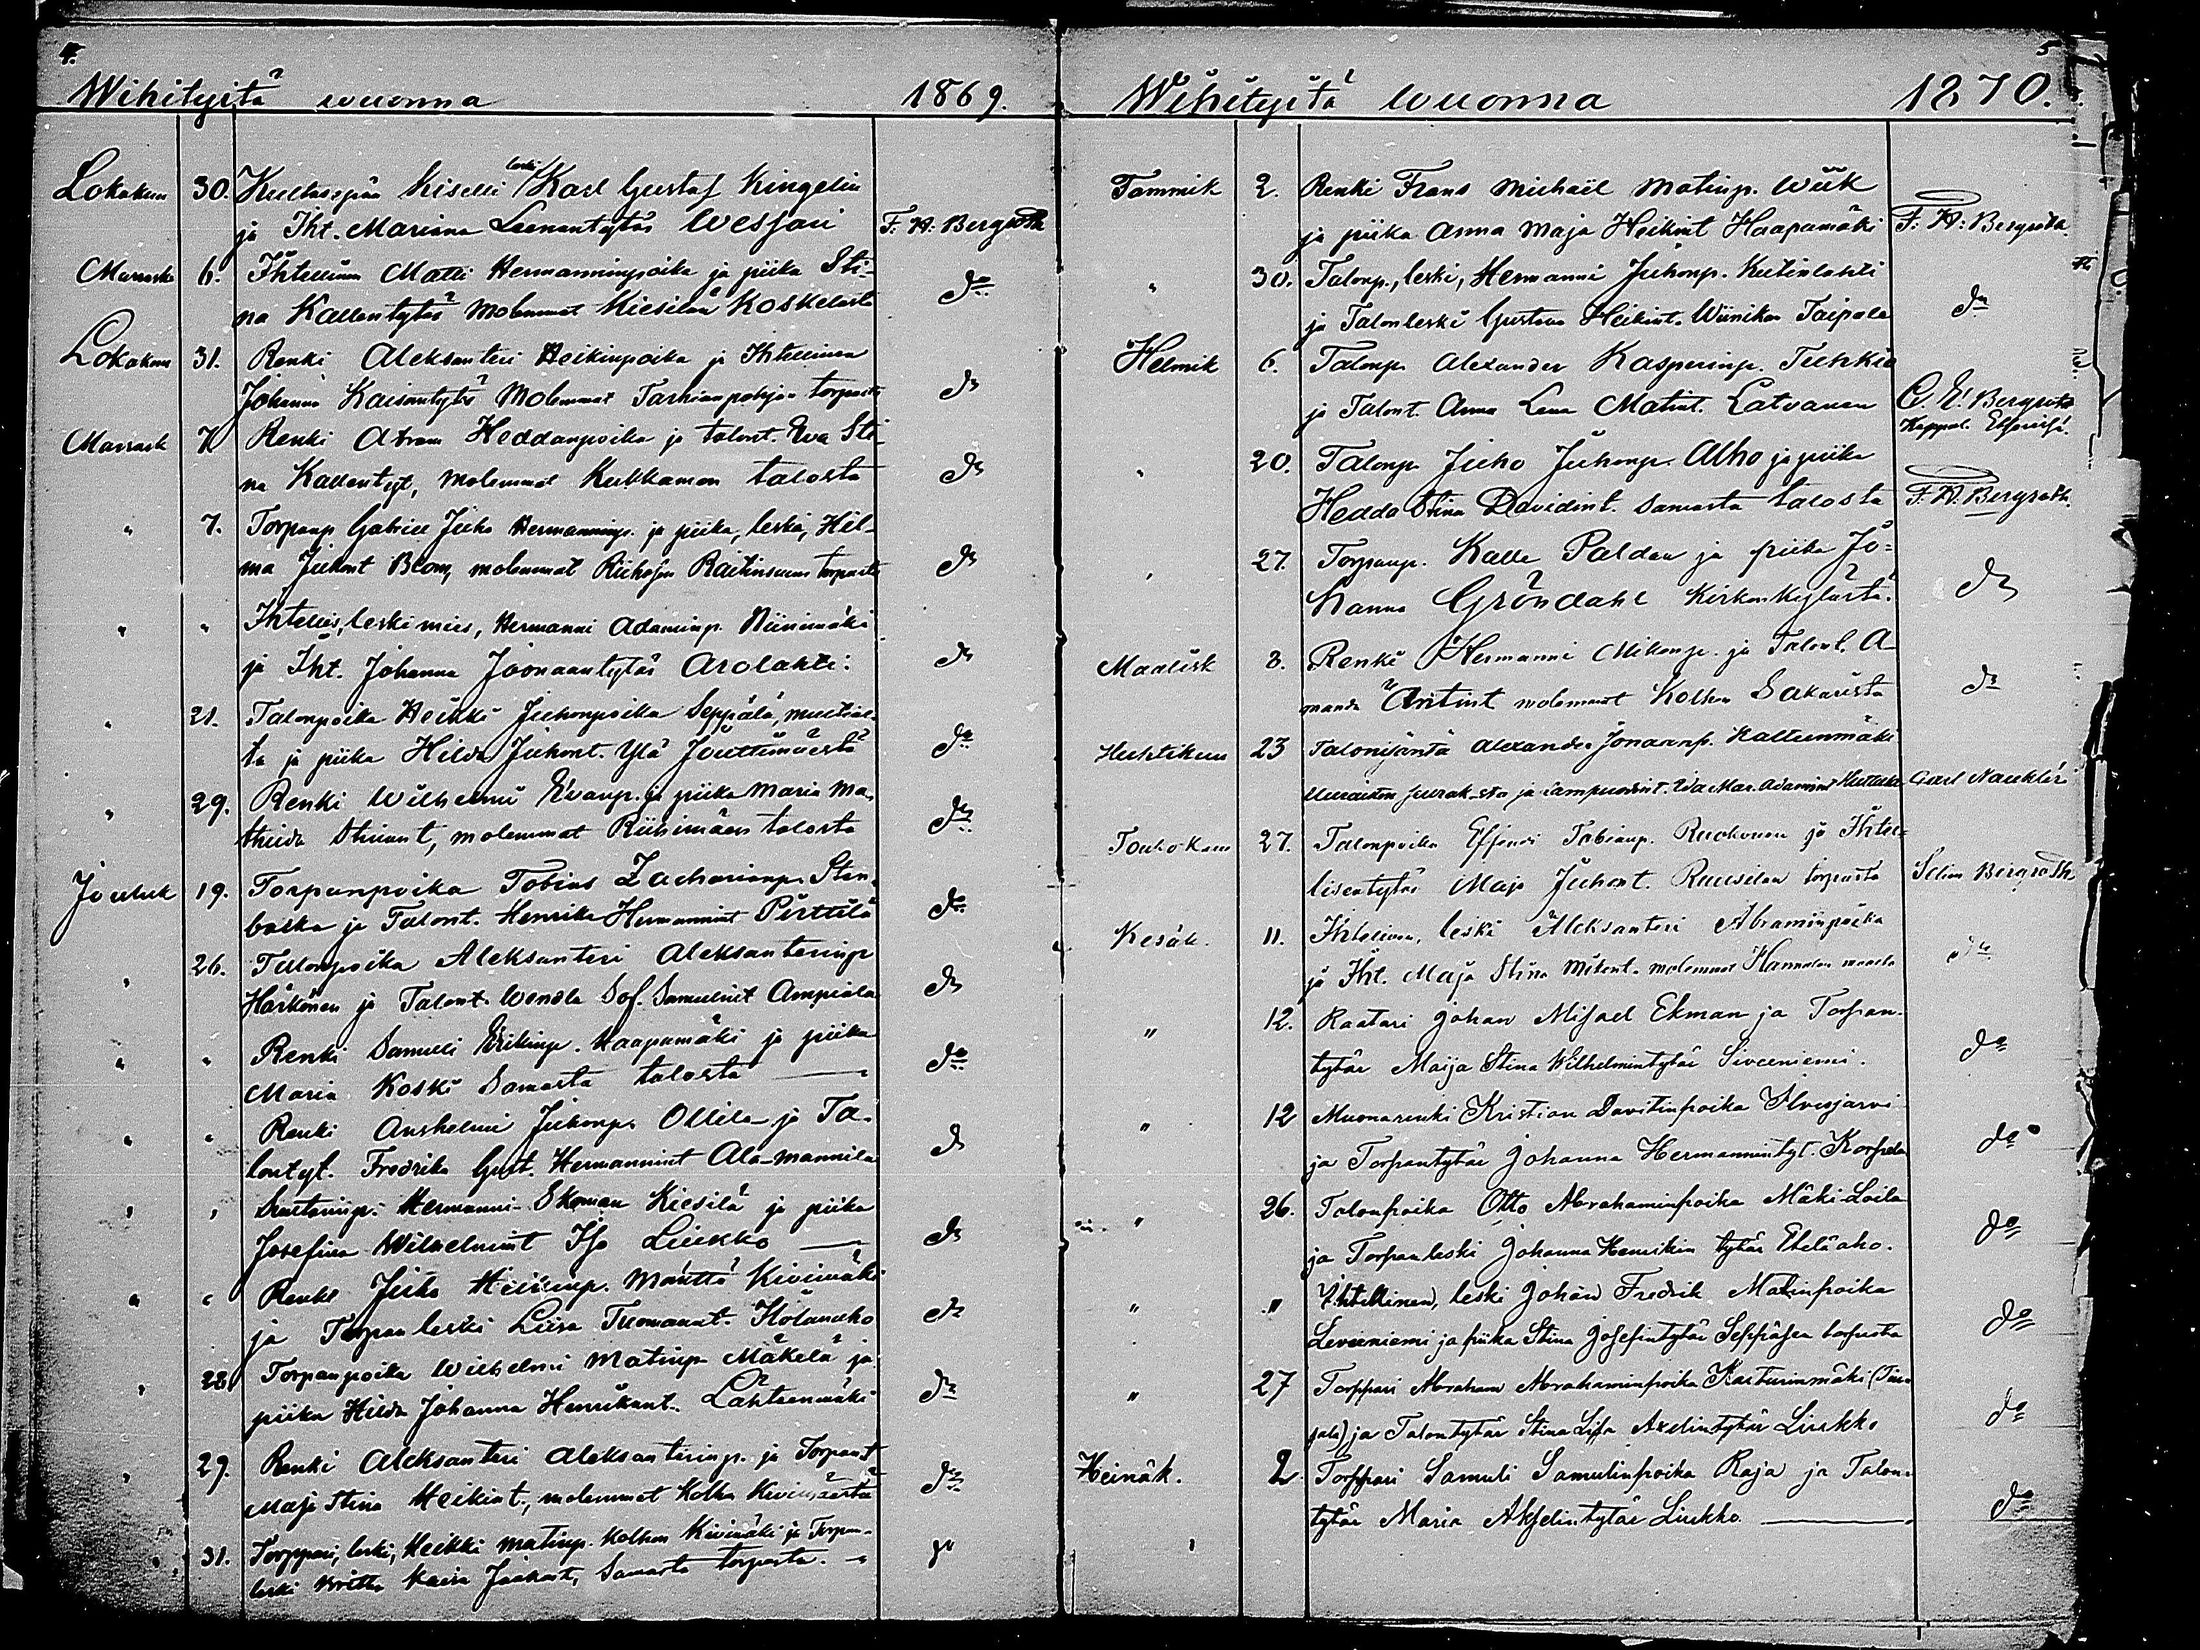 4.
Wihityitä wuonna 1869.
Lokakuu 30. Kultasepän Kiselli leski Karl Gustaf Kingelin
ja Iht. Mariana Leenantytär Wessari F: H: Bergroth
Marrask 6. Ihtellinen Matti Hermanninpoika ja piika Sti-
na Kallentytär molemmat Kiesilän Koskelasta do
Lokakuu 31. Renki Aleksanteri Heikinpoika ja Ihtellinen
Johanna Kaisantytär molemmat Tarhianpohjan torpasta do
Marrask 7 Renki Abram Heddanpoika ja talont. Eva Sti-
na Kallentyt, molemmat Kukkamon talosta do
" 7. Torpanp Gabriel Juho Hermanninp. ja piika, leski, Hil-
ma Juhont Blom, molemmat Raitinsuun torpasta do
" " Ihtellis, leski mies, Hermanni Adaminp. Niinimäki
ja Iht. Johanna Joonaantytär Arolahti. do
" 21. Talonpoika Heikki Juhonpoika Seppälä,
ta ja piika Hilda Juhont. Ylä Jouttimäestä do
" 29. Renki Wilhelmi Evanp. ja piika Maria Ma-
thilda Stinant, molemmat Riihimäen talosta do
Jouluk 19. Torpanpoika Tobias Zacharianp. Sten-
backa ja Talont. Henrika Hermannint Perttilä do
" 26. Talonpoika Aleksanteri Aleksanterinp
Härkönen ja Talont. Wendla Sof. Samulint Ampiala do
" " Renki Samuli Erikinp. Haapamäki ja piika
Maria Koski Samasta talosta do
" " Renki Anshelmi Juhonp. Ollila ja Ta-
lontyt. Fredrika Gust. Hermannint Ala-Mannila do
" " Hermanni Skoman Kiesilä ja piika
Josefina Wilhelmint Iso Liukko do
" " Renki Juho Heikinp. Mänttä Kivimäki
ja Torpan leski Liisa Tuomaant. do
" 28. Torpanpoika Wilhelmi Matinp. Mäkelä ja
piika Hilda Johanna Henrikint. Lähteenmäki do
" 29. Renki Aleksanteri Aleksanterinp. ja Torpant
Maja Stina Heikint., molemmat Kolhon Kivimäestä do
" 31. Torppari, leski, Heikki Matinp. Kolhon Kivimäki ja Torpan-
leski Kaisa Jaakont, Samasta torpasta. do
5
Wihityitä wuonna 1870.
Tammik 2. Renki Frans Michaël Matinp. Wiik
ja piika Anna Maja Heikint Haapamäki F: H: Bergroth.
" 30. Talonp., leski, Hermanni Juhonp. Kutinlahti
ja Talonleski Gustava Heikint. Wiinikan Taipale do
Helmik 6. Talonp. Alexander Kasperinp. Tuhkio
ja Talont. Anna Lena Matint. Latvanen C. E. Bergroth
Kappal. Etseris.
" 20. Talonp. Juho Juhonp. Alho ja piika
Hedda Stina Davidint. samasta talosta F. H. Bergroth.
" 27. Torpanp. Kalle Paldan ja piika Jo-
hanna Gröndahl Kirkonkylästä. do
Maalisk 8. Renki Hermanni Mikonp. ja Talont. A-
manda Antint molemmat Kolhon Sakarista do
Huhtikuu 23 Talonisäntä Alexander Jonaanp. Kaltunmäki
ja Ida Mar. Adamint Carl Nauklér
Toukokuu 27. Talonpoika Tobianp. Ruokonen ja Ihtel-
lisentytär Maja Juhont. Ruusilan torpasta Selim Bergroth
Kesäk. 11. Ihtelinen, leski Aleksanteri Abraminpoika
ja Iht. Maja Stina Mikont. molemmat Hannulan maalta do
" 12. Raatari Johan Misael Ekman ja Torpan-
tytär Maija Stina Wilhelmintytär Siveeniemi. do
" 12 Muonarenki Kristian Davitinpoika Ilvesjärvi
ja Torpantytär Johanna Hermannintyt. Korpela do
" 26. Talonpoika Otto Abrahaminpoika Mäki-Loila
ja Torpanleski Johanna Henrikin tytär Eteläaho. do
" " Ihtellinen, leski Johan Fredrik Matinpoika
Leveeniemi ja piika Stina Josefintytär torpasta do
" 27 Torppari Abraham Abrahaminpoika Karturinmäki (Tau-
sala) ja Talontytär Stina Lisa Axelintytär Liukko do
Heinäk. 2 Torppari Samuli Samulinpoika Raja ja Talon-
tytär Maria Akselintytär Liukko. do